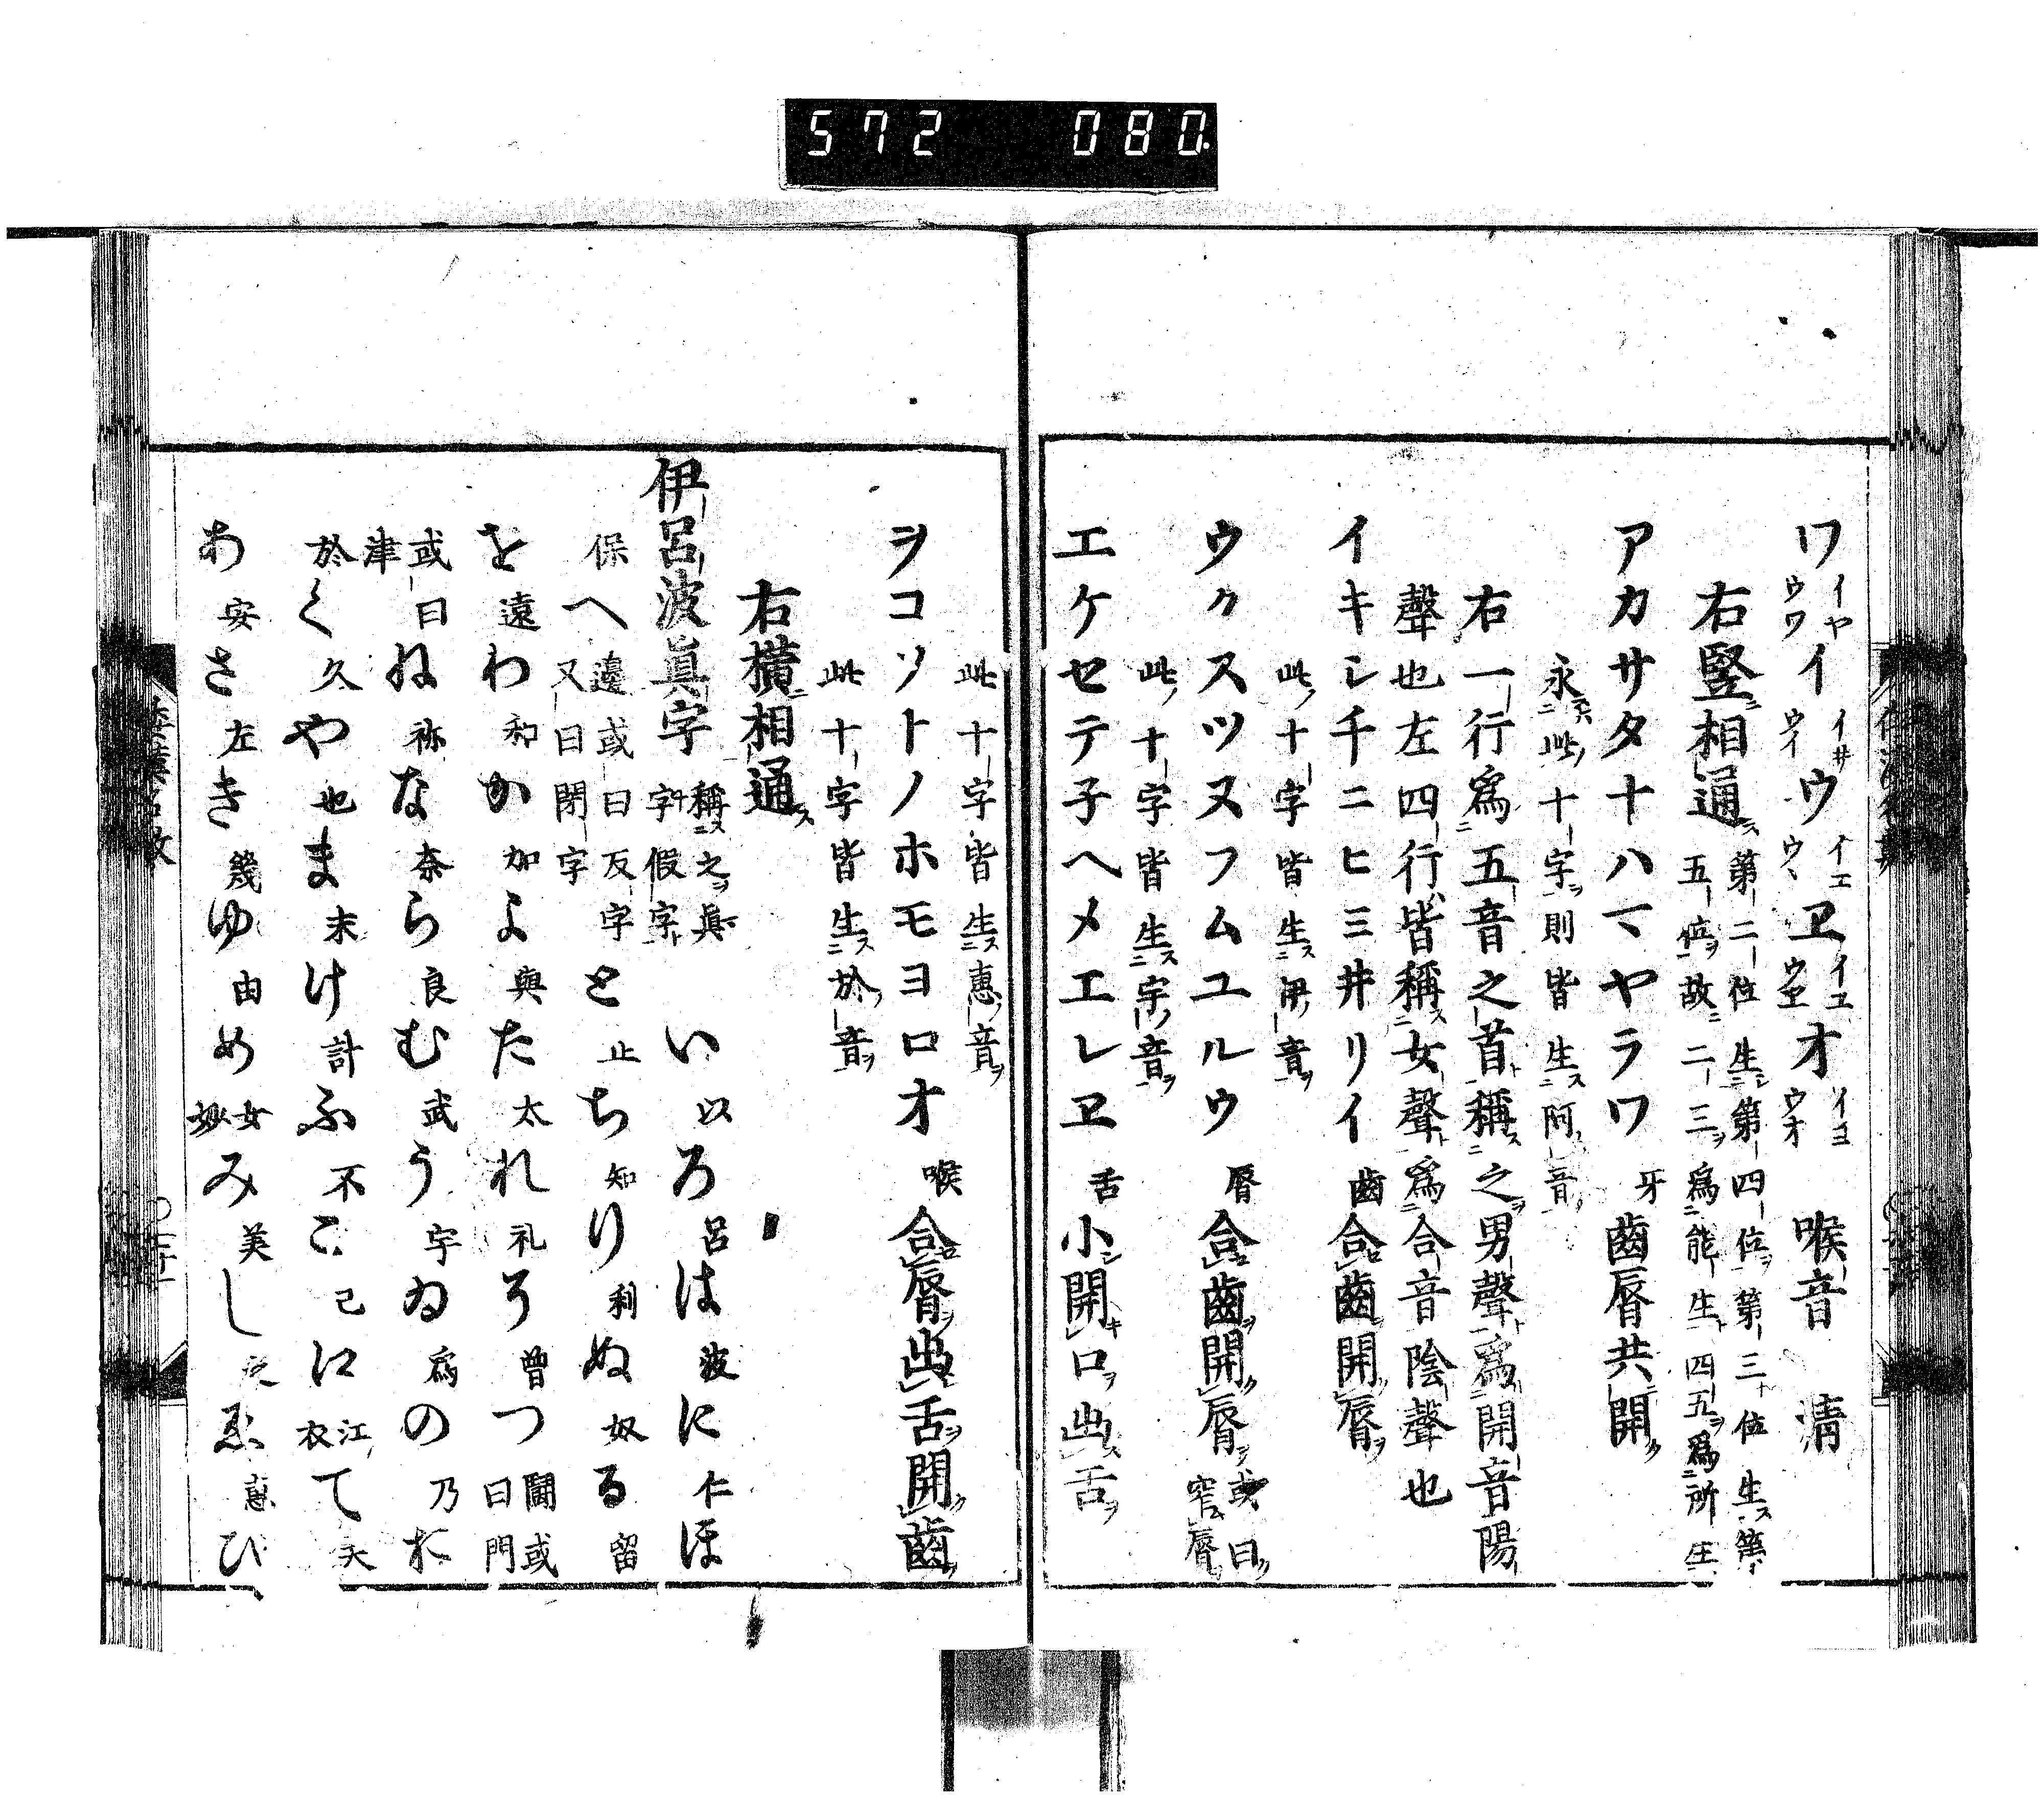 572 080
ワ イヤ ウワ イ イヰ ウイ ウ イエ ウヽ ヱ イユ ウヱ オ イヨ ウオ 喉音 清
右竪相通ス 第二位生シ第四位ヲ第三位生ス第
五位ヲ故ニ二三ヲ爲能生四五ヲ爲所生
アカサタナハマヤラワ 牙 齒脣共開ク
永ク此ノ十字ヲ則皆生ス阿ノ音
右一行爲五音之首稱ス之ヲ男聲ト爲開音陽
聲也左四行皆稱ス女聲ト爲合音陰聲也
イキシチニヒミヰリイ 齒 合齒開脣ヲ
此ノ十字皆生ス伊ノ音ヲ
ウクスツヌフムユルウ 脣 合齒ヲ開ク脣ヲ 或曰ク 窄脣
此ノ十字皆生ス宇ノ音ヲ
エケセテ子ヘメエレヱ 舌 小シ開キ口ヲ出ス舌ヲ
此十字皆生ス惠ノ音ヲ
ヲコソトノホモヨロオ 喉 合脣ヲ出舌ヲ開ク齒ヲ
此十字皆生ス於ノ音ヲ
右橫相通ス
伊呂波眞字 稱ス之ヲ眞 字假字ト い 以 ろ 呂 は 波 に 仁 ほ
保 へ 邊或曰反字 又曰閉字 と 止 ち 知 り 利 ぬ 奴 る 留
を 遠 わ 和 か 加 よ 與 た 太 れ 礼 そ 曾 つ 鬪或 曰門
或曰 津 ね 祢 な 奈 ら 良 む 武 う 宇 ゐ 爲 の 乃 お
於 く 久 や 也 ま 末 け 計 ふ 不 こ 己 江 江 衣 て 天
あ 安 さ 左 き 幾 ゆ 由 め 女 妙 み 美 し 之 ゑ 惠 ひ